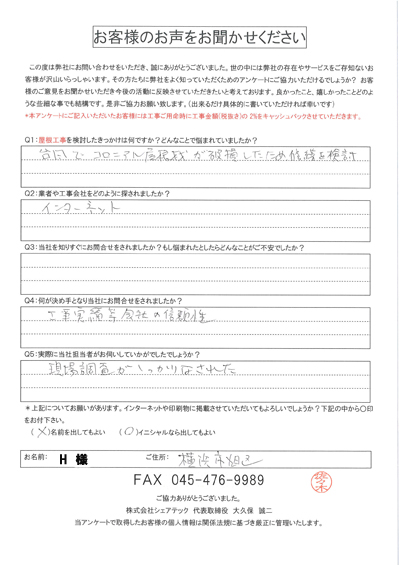 お客様のお声をお聞かせください
この度は弊社にお問い合わせをいただき、誠にありがとうございました。世の中には弊社の存在やサービスをご存知ないお
客様が沢山いらっしゃいます。その方たちに弊社をよく知っていただくためのアンケートにご協力いただけるでしょうか？ お客
様のご意見をお聞かせいただき今後の活動に反映させていただきたいと考えております。良かったこと、嬉しかったことどのよ
うな些細な事でも結構です。是非ご協力お願い致します。（出来るだけ具体的に書いていただければ幸いです）
*本アンケートにご記入いただいたお客様には工事ご用命時に工事金額（税抜き）の2%をキャッシュバックさせていただきます。
Q1：屋根工事を検討したきっかけは何ですか？どんなことで悩まれていましたか？
台風でコロニアル屋根材が破損したため修繕を検討
Q2：業者や工事会社をどのように探されましたか？
インターネット
Q3：当社を知りすぐにお問合せをされましたか？もし悩まれたとしたらどんなことがご不安でしたか？
Q4：何が決め手となり当社にお問合せをされましたか？
工事実績等会社の信頼性
Q5：実際に当社担当者がお伺いしていかがでしたでしょうか？
現場調査がしっかりなされた
＊上記についてお願いがあります。インターネットや印刷物に掲載させていただいてもよろしいでしょうか？下記の中から〇印
をお付け下さい。
（ ×）名前を出してもよい （ 〇）イニシャルなら出してもよい
お名前： H 様 ご住所： 横浜市旭区
FAX 045-476-9989
ご協力ありがとうございました。
株式会社シェアテック 代表取締役 大久保 誠二
当アンケートで取得したお客様の個人情報は関係法規に基づき厳正に管理いたします。